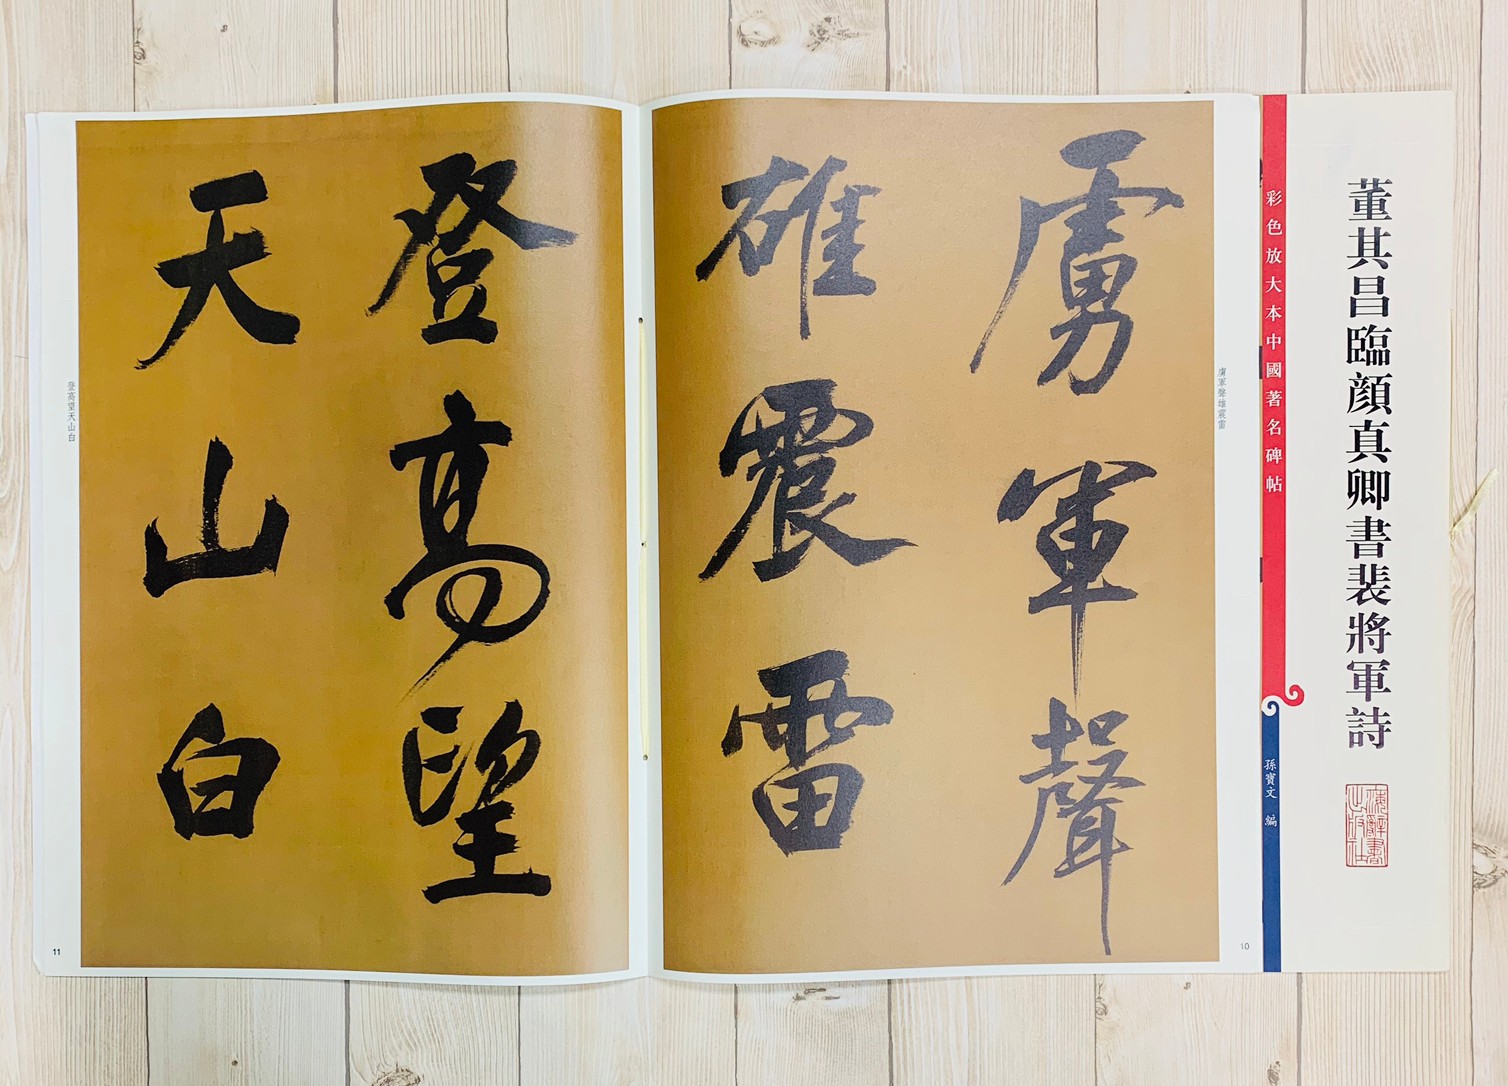 董其昌臨顔真卿書裴將軍詩
彩色放大本中國著名碑帖
孫寶文 編
虜軍聲雄震雷
虜軍聲
雄震雷
10
登高望
天山白
登高望天山白
11